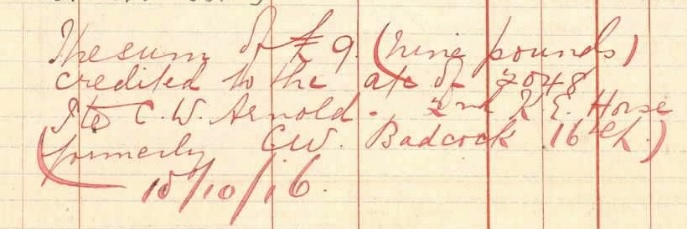 The sum of £9. (nine pounds)
credited to the a/c of 7048
Pte C. W. Arnold. 2nd K. E. Horse
(formerly CW. Badcock 16th.)
10/10/16.